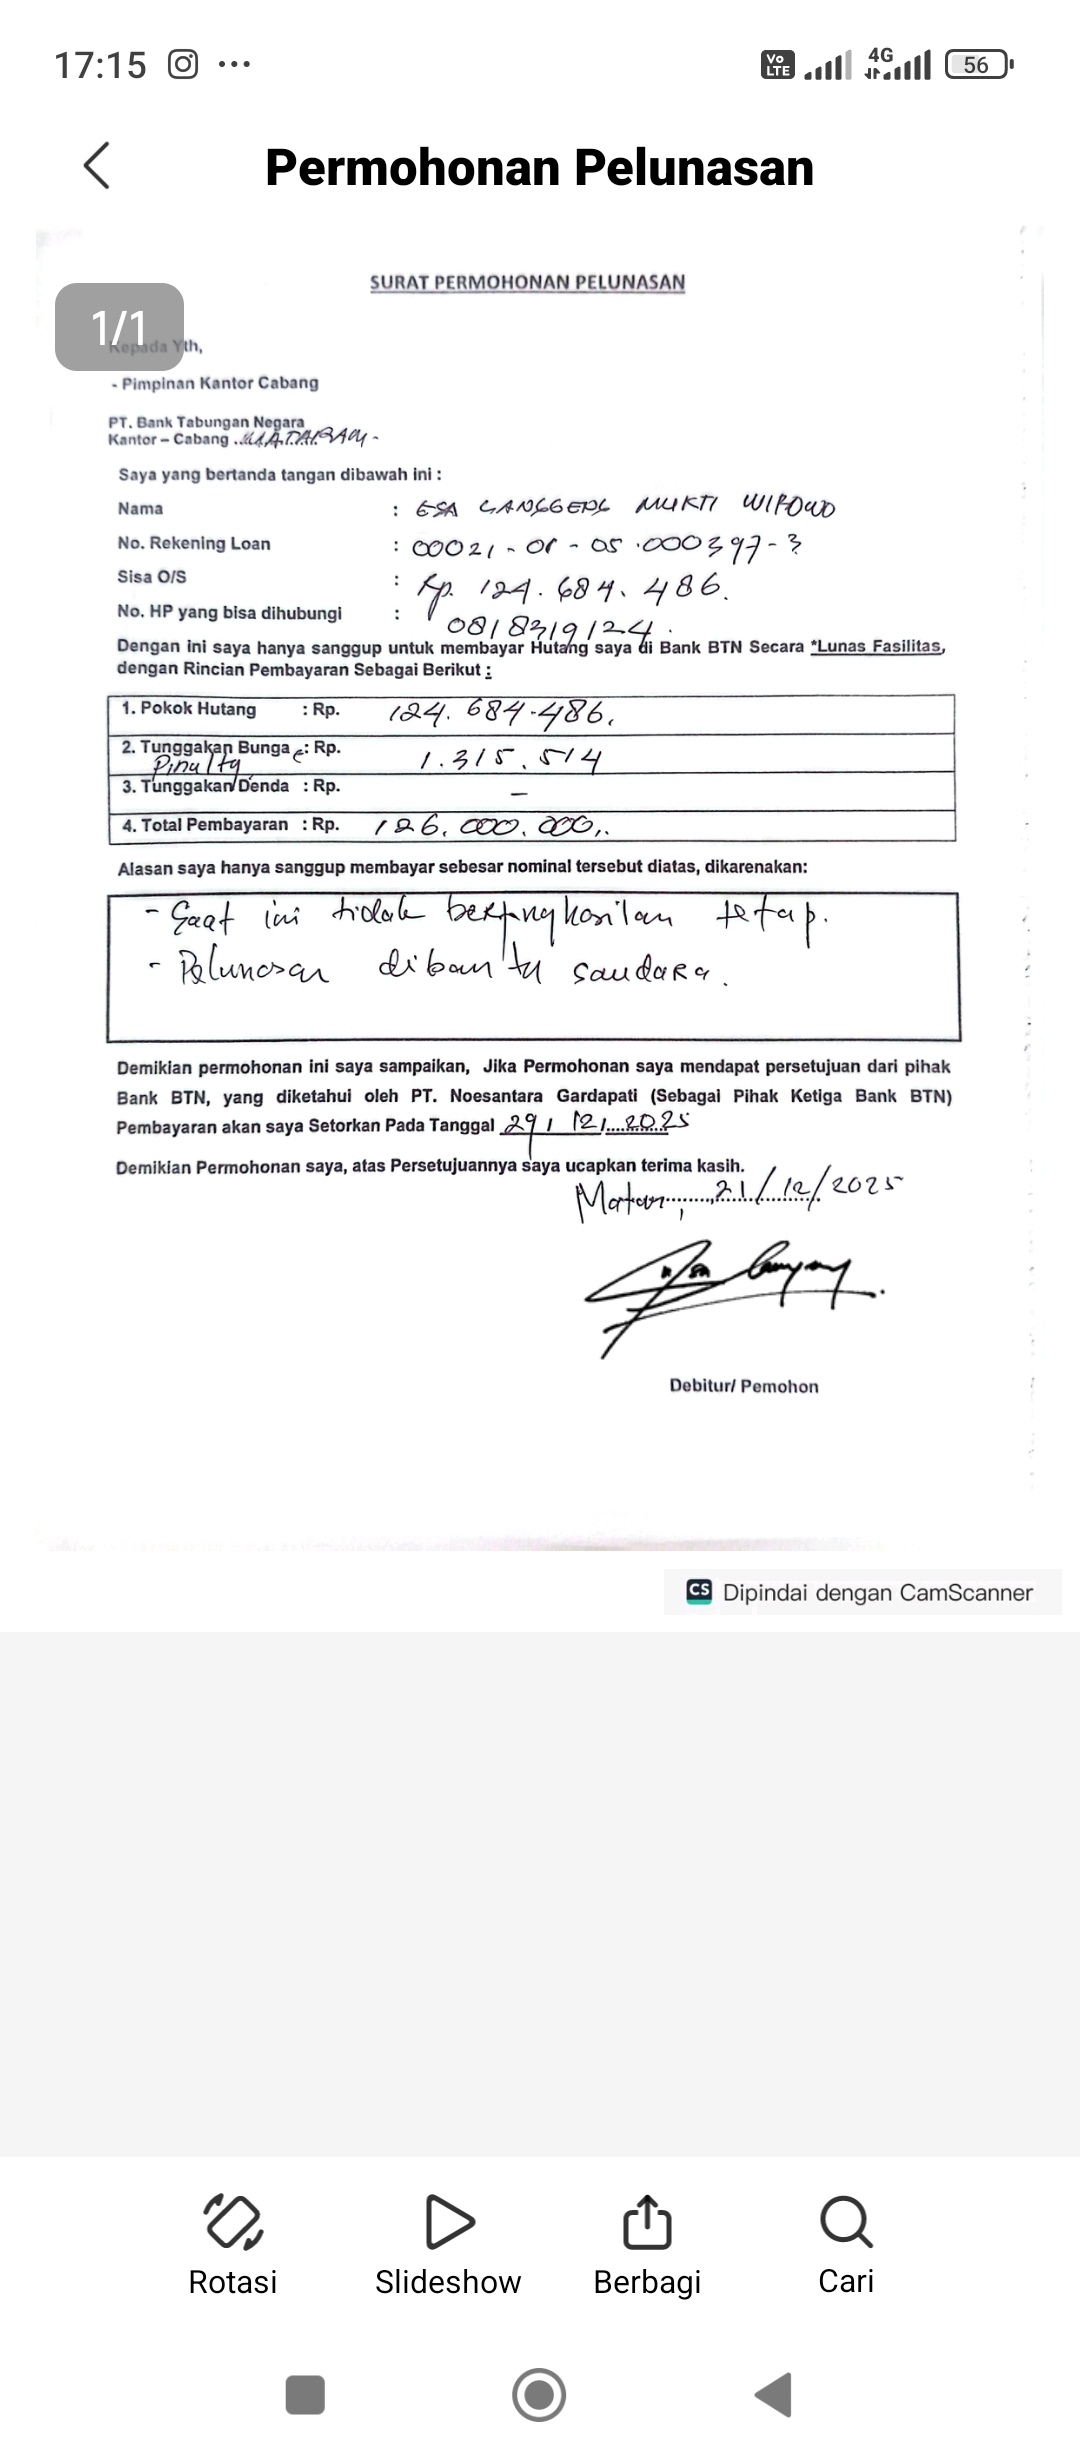 17:15
Vo LTE 4G 56
Permohonan Pelunasan
SURAT PERMOHONAN PELUNASAN
1/1
Kepada Yth,
- Pimpinan Kantor Cabang
PT. Bank Tabungan Negara
Kantor – Cabang ..MATARAM-
Saya yang bertanda tangan dibawah ini :
Nama : ESA LANGGENG MUKTI WIBOWO
No. Rekening Loan : 00021-01-05.000397-3
Sisa O/S : Rp. 124.684.486.
No. HP yang bisa dihubungi : 0818319124.
Dengan ini saya hanya sanggup untuk membayar Hutang saya di Bank BTN Secara *Lunas Fasilitas,
dengan Rincian Pembayaran Sebagai Berikut :
1. Pokok Hutang : Rp. 124.684.486.
2. Tunggakan Bunga : Rp. 1.315.514
Pinulty
3. Tunggakan/Denda : Rp. –
4. Total Pembayaran : Rp. 126.000.000,.
Alasan saya hanya sanggup membayar sebesar nominal tersebut diatas, dikarenakan:
- Saat ini tidak berpenghasilan tetap.
- Pelunasan dibantu saudara.
Demikian permohonan ini saya sampaikan, Jika Permohonan saya mendapat persetujuan dari pihak
Bank BTN, yang diketahui oleh PT. Noesantara Gardapati (Sebagai Pihak Ketiga Bank BTN)
Pembayaran akan saya Setorkan Pada Tanggal 29/12/2025
Demikian Permohonan saya, atas Persetujuannya saya ucapkan terima kasih.
21/12/2025
Debitur/ Pemohon
CS Dipindai dengan CamScanner
Rotasi Slideshow Berbagi Cari